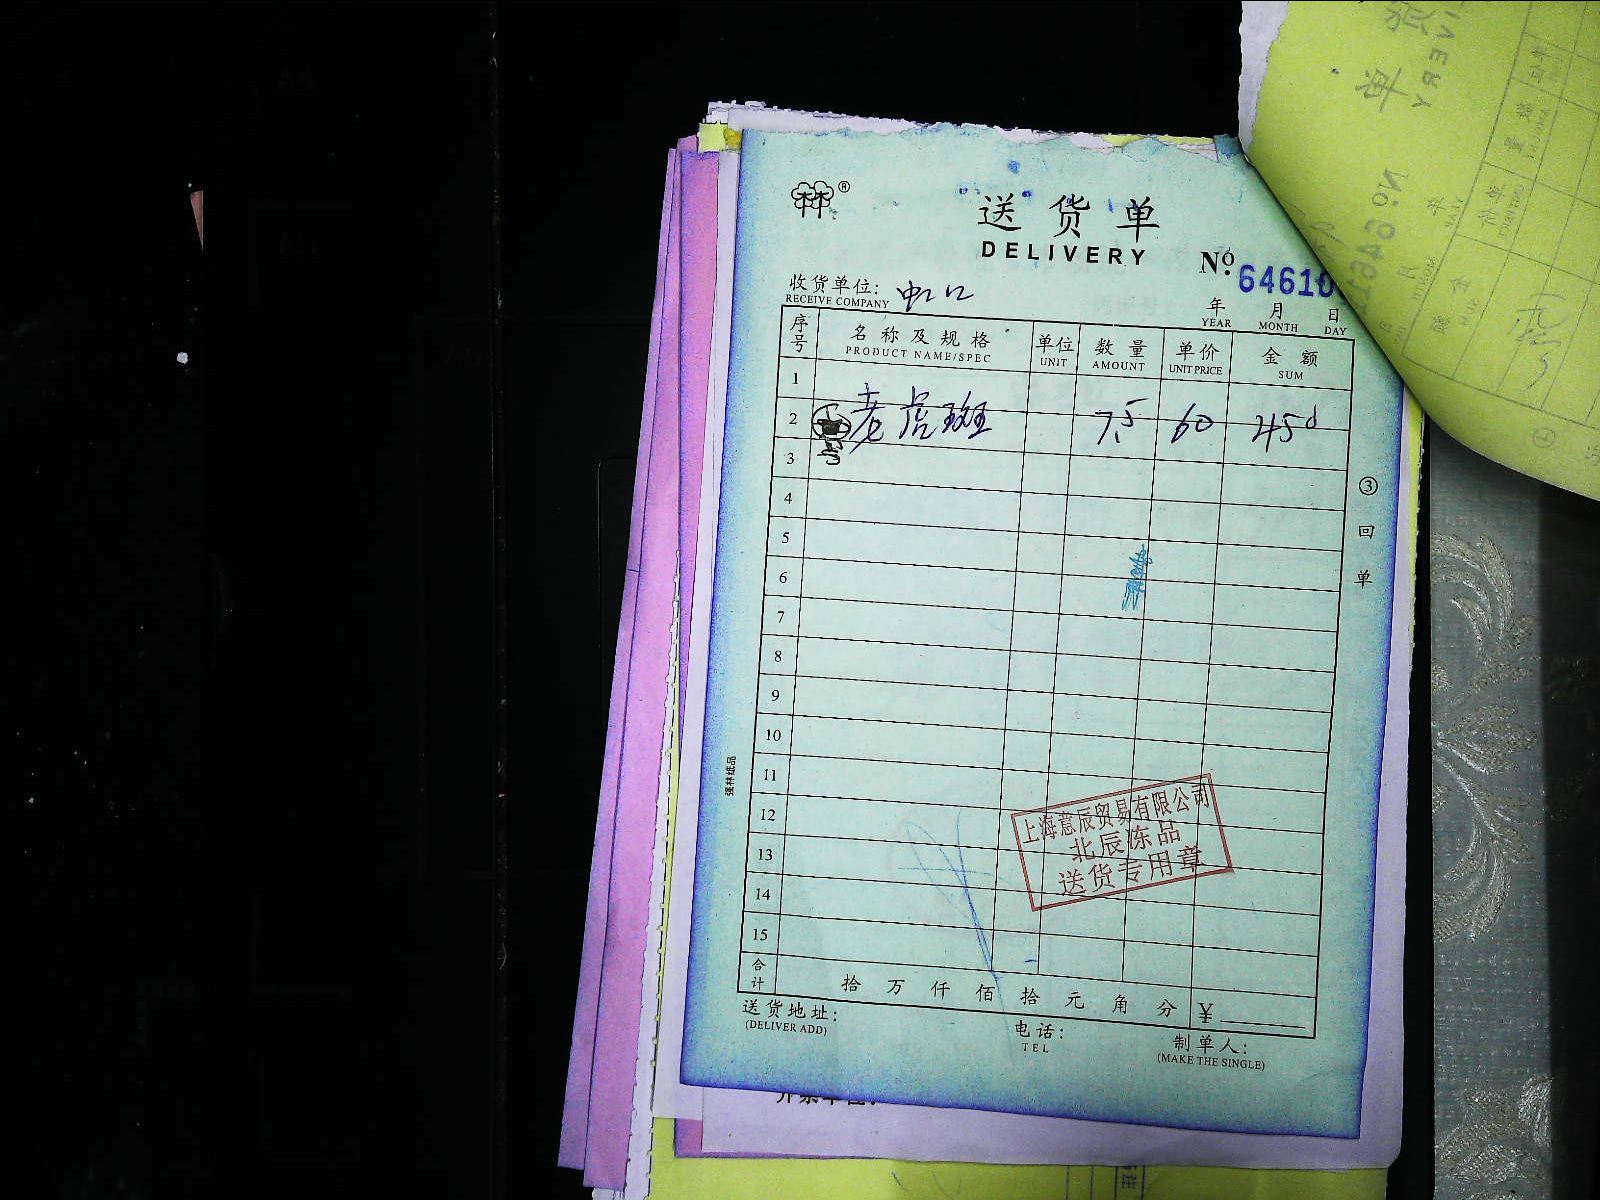 送货单
DELIVERY
№ 64610
收货单位:
RECEIVE COMPANY
年 月 日
YEAR MONTH DAY
序号 名称及规格 单位 数量 单价 金额
PRODUCT NAME/SPEC UNIT AMOUNT UNIT PRICE SUM
1
2 老虎斑 7.5 60 450
3
4
5
6
7
8
9
10
11
12
13
14
15
合计 拾 万 仟 佰 拾 元 角 分 ¥
送货地址:
(DELIVER ADD)
电话:
TEL
制单人:
(MAKE THE SINGLE)
③回单
强林纸品
上海意辰贸易有限公司
北辰冻品
送货专用章